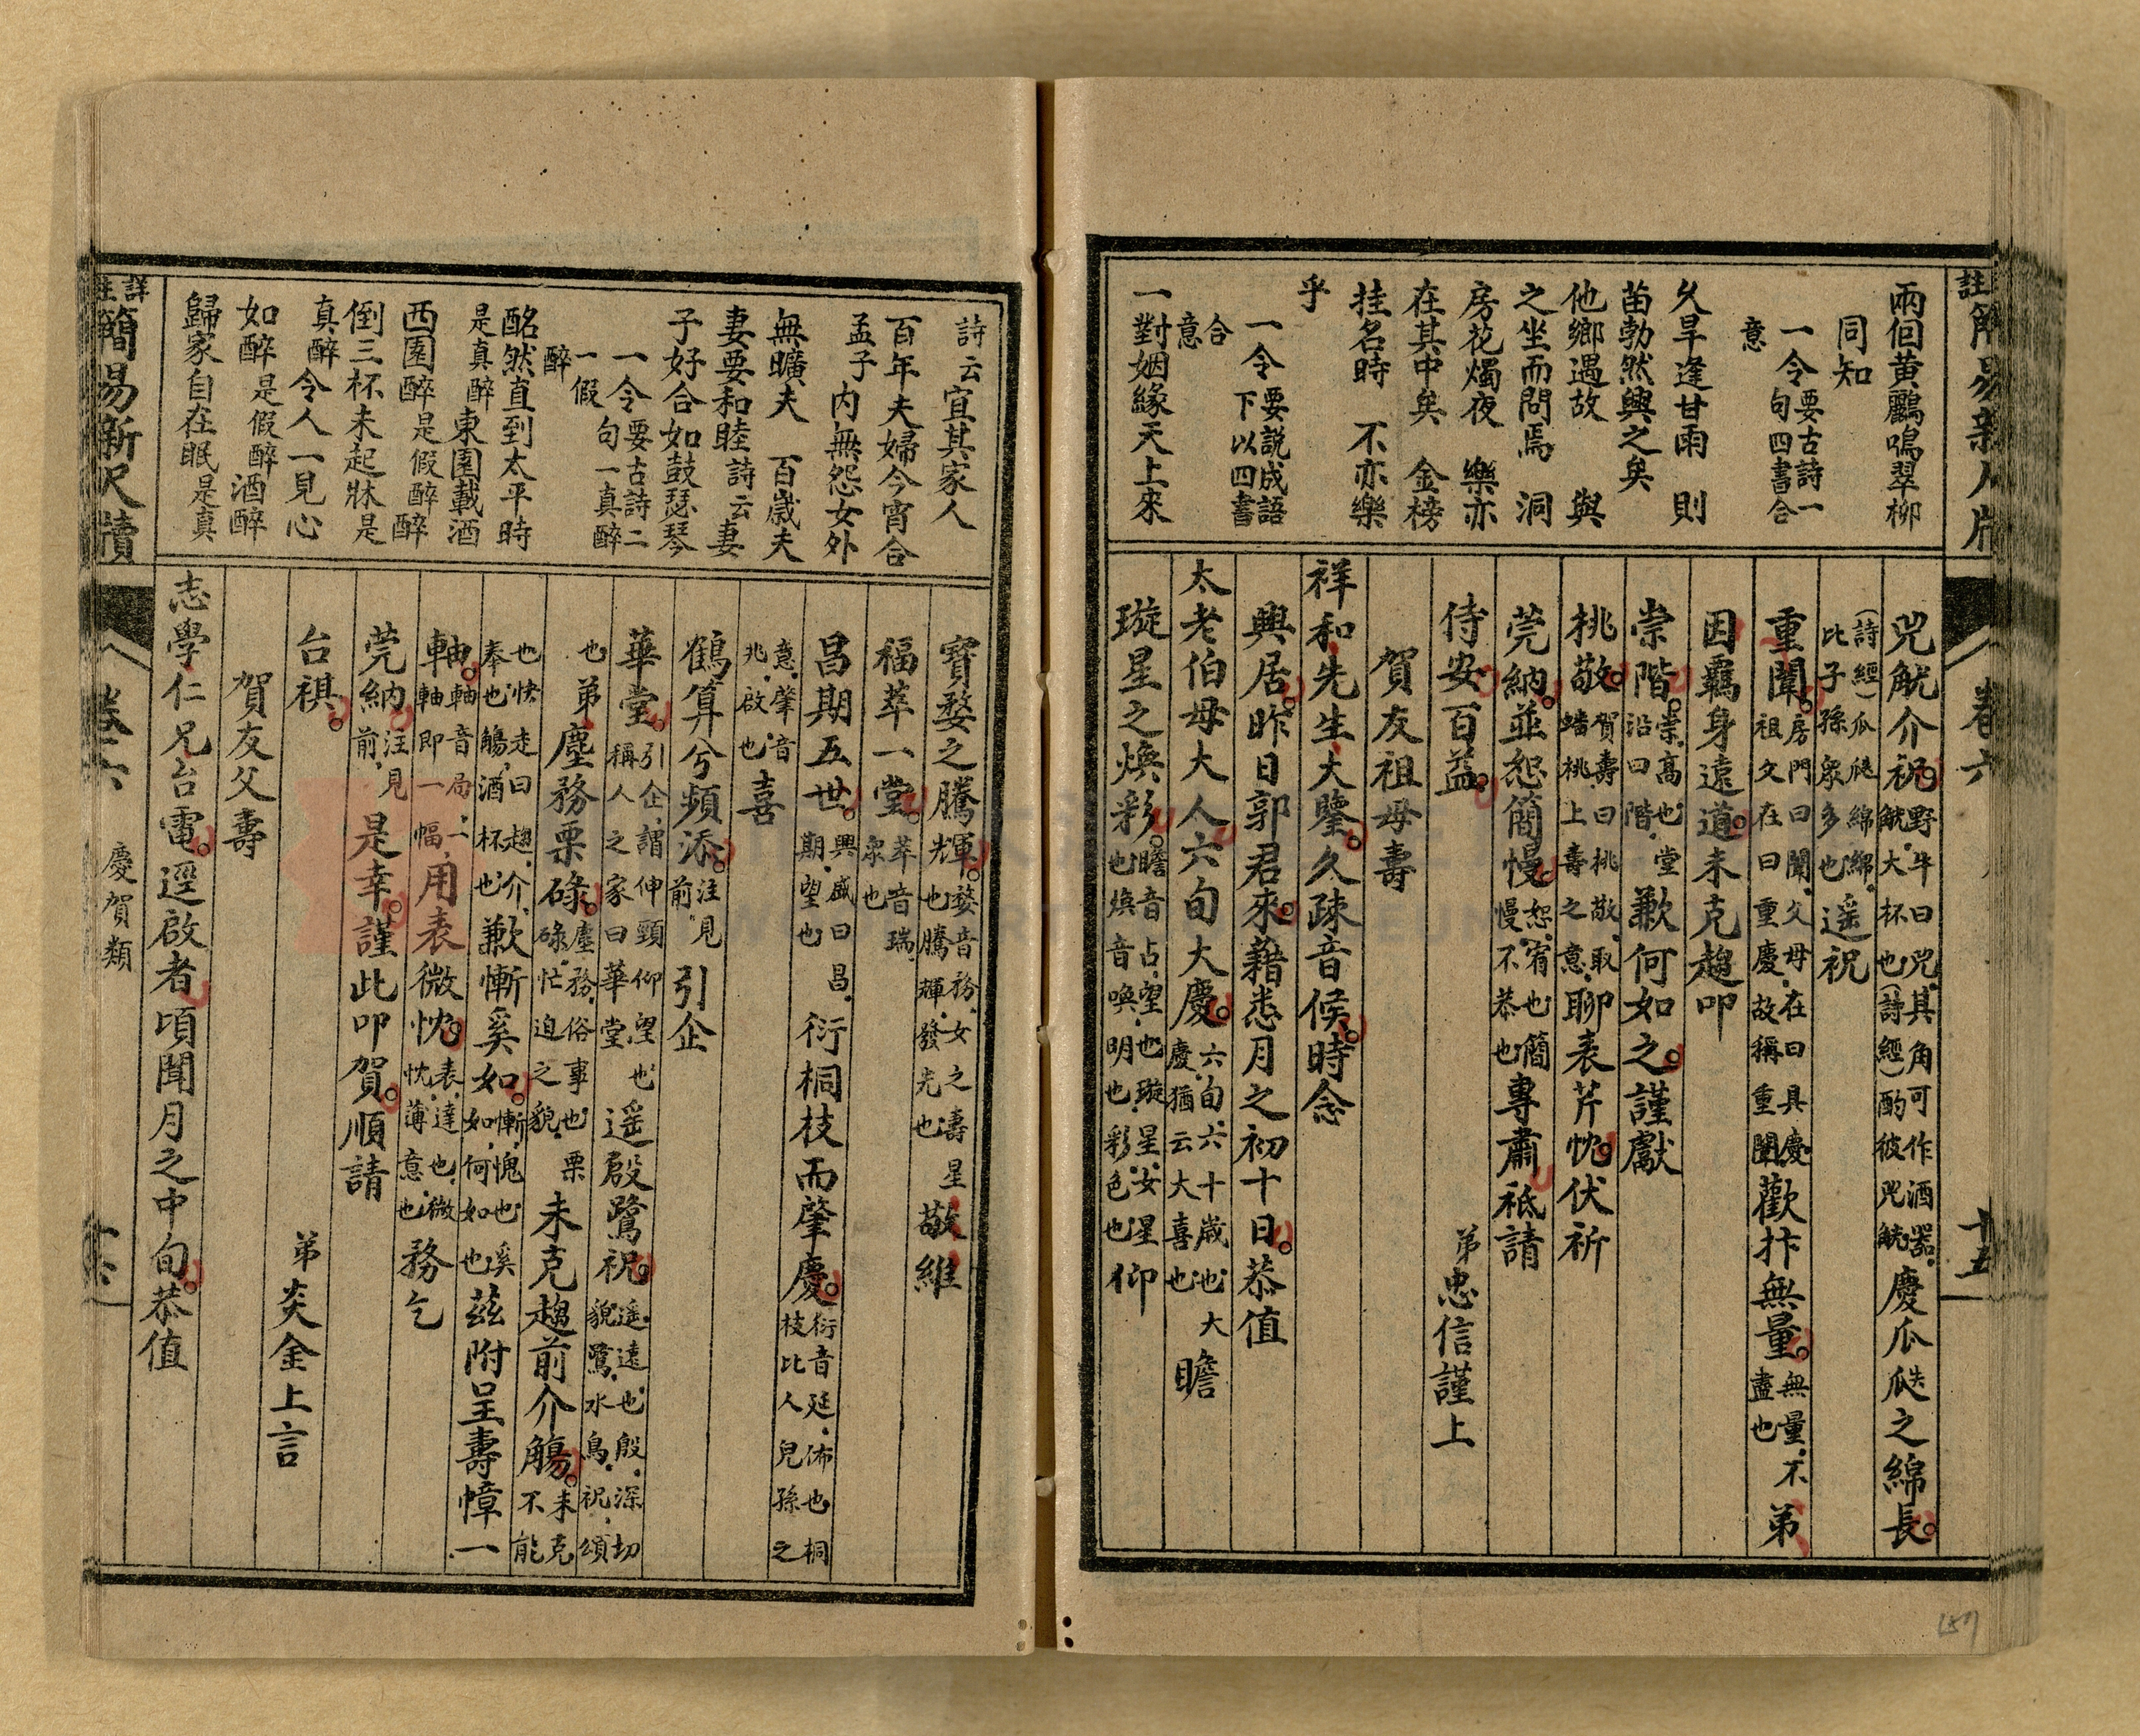 兩個黃鸝鳴翠柳
同知
一令要古詩一句四書合
意
久旱逢甘雨 則
苗勃然興之矣
他鄉遇故 與
之坐而問焉 洞
房花燭夜 樂亦
在其中矣 金榜
挂名時 不亦樂
乎
一令要説成語下以四書
合意
一對姻緣天上來
兕觥介祝野牛曰兕其角可作酒器觥大杯也(詩經)酌彼兕觥慶瓜瓞之綿長
(詩經)瓜瓞綿綿比子孫衆多也遥祝
重闈房門曰闈父母在曰具慶祖父在曰重慶故稱重闈歡抃無量無量不盡也弟
因羈身遠道未克趨叩
崇階崇高也堂沿曰階歉何如之謹獻
桃敬賀壽曰桃敬取蟠桃上壽之意聊表芹忱伏祈
莞納並恕簡慢恕宥也簡慢不恭也專肅祗請
侍安百益 弟忠信謹上
賀友祖母壽
祥和先生大鑒久疎音候時念
興居昨日郭君來藉悉月之初十日恭值
太老伯母大人六旬大慶六旬六十歲也大慶猶云大喜也瞻
璇星之煥彩瞻音占望也璇星女星也煥音喚明也彩色也仰
卷六
十五
詩云宜其家人
百年夫婦今宵合
孟子內無怨女外
無曠夫 百歲夫
妻要和睦詩云妻
子好合如鼓瑟琴
一令要古詩二句一真醉
一假醉
酩然直到太平時
是真醉 東園載酒
西園醉是假醉 醉
倒三杯未起牀是
真醉 令人一見心
如醉是假醉 酒醉
歸家自在眠是真
寶婺之騰輝婺音務女之壽星也騰輝發光也敬維
福萃一堂萃音瑞衆也
昌期五世興盛曰昌期望也衍桐枝而肇慶衍音廷佈也桐枝比人兒孫之
意肇音兆啟也喜
鶴算兮頻添注見前引企
華堂引企謂伸頸仰望也稱人之家曰華堂遥殷鷺祝遥遠也殷深切貌鷺水鳥祝頌
也弟塵務栗碌塵務俗事也栗碌忙迫之貌未克趨前介觴未克不能
也快走曰趨介奉也觴酒杯也歉慚奚如慚愧也奚如何如也茲附呈壽幛一
軸軸音局一軸即一幅用表微忱表達也微忱薄意也務乞
莞納注見前是幸謹此叩賀順請
台祺 弟炎金上言
賀友父壽
志學仁兄台電逕啟者頃聞月之中旬恭值
詳註簡易新尺牘
卷六
慶賀類